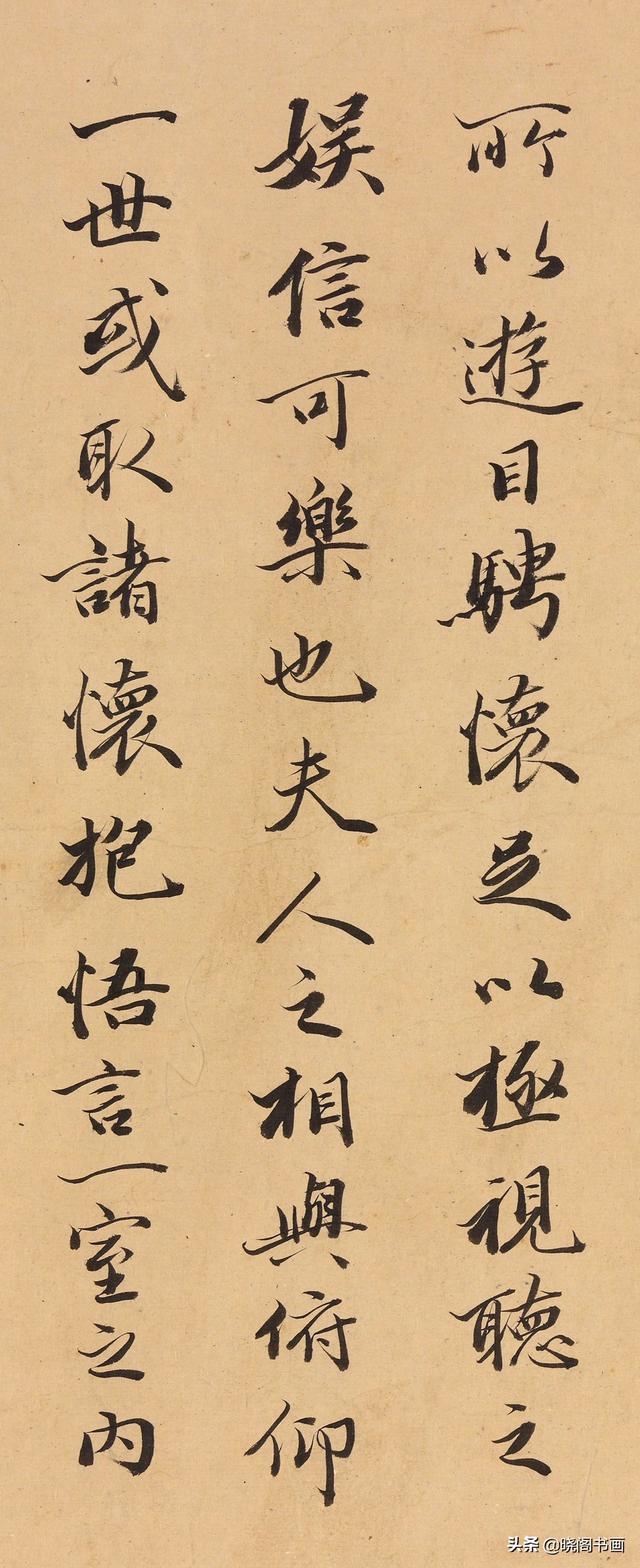 所以遊目騁懷足以極視聽之
娱信可樂也夫人之相與俯仰
一世或取諸懷抱悟言一室之內
头条 @晓阁书画